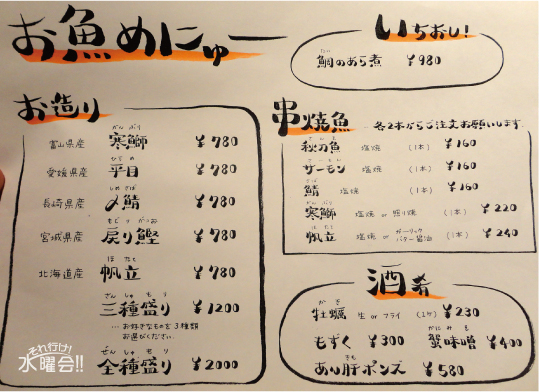 お魚めにゅー
いちおし!
たい
鯛のあら煮 ¥980
お造り
かんぶり
富山県産 寒鰤 ¥780
ひらめ
愛媛県産 平目 ¥780
しめさば
長崎県産 〆鯖 ¥780
もどりがつお
宮城県産 戻り鰹 ¥780
ほたて
北海道産 帆立 ¥780
さんしゅもり
三種盛り ¥1200
…お好きなものを3種類
お選びください。
ぜんしゅもり
全種盛り ¥2000
串焼魚 -各2本からご注文お願いします。
さんま
秋刀魚 塩焼 (1本) ¥160
サーモン 塩焼 (1本) ¥160
さば
鯖 塩焼 (1本) ¥160
かんぶり
寒鰤 塩焼 or 照り焼 (1本) ¥220
ほたて
帆立 塩焼 or ガーリックバター醤油 (1本) ¥240
酒肴
かき
牡蠣 生 or フライ (1ケ) ¥230
かにみそ
もずく ¥300 蟹味噌 ¥400
あん肝ポンズ ¥580
それ行け!
水曜会!!